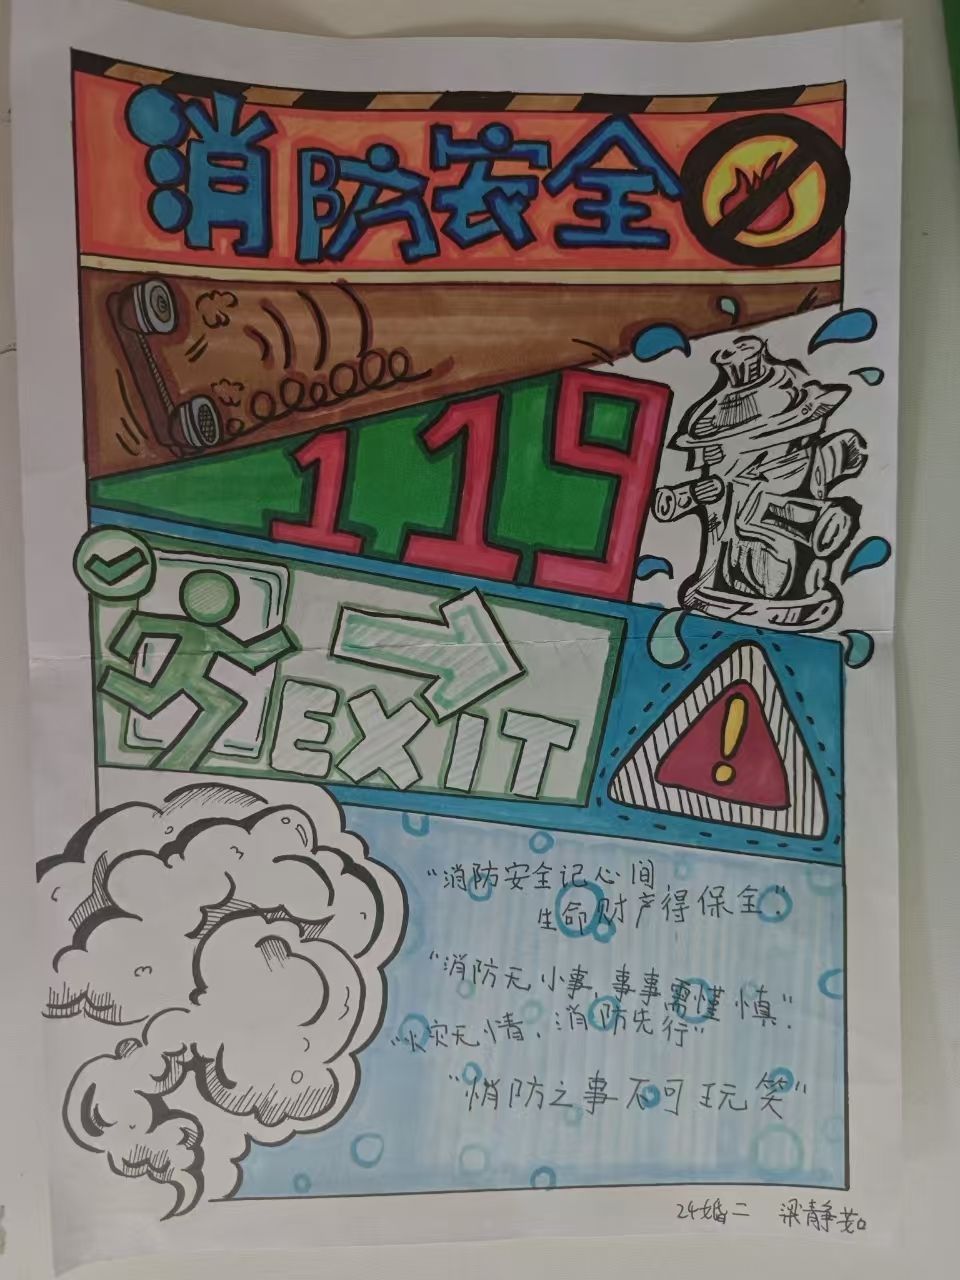 消防安全
119
EXIT
"消防安全记心间
生命财产得保全".
"消防无小事,事事需懂慎".
"火灾无情,消防先行"
"消防之事不可玩笑"
24婚二 梁静茹